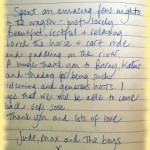 Spent an amazing four nights
in wagon - just lovely.
Beautiful, restful + relaxing.
Loved the horse + cart ride
and paddling in the river.
A huge thank you to Barny, Katie
and for being such
welcoming and generous hosts. I
hope that we will be able to come
back real soon
Thank you and lots of love
Jude, Max and the boys
x